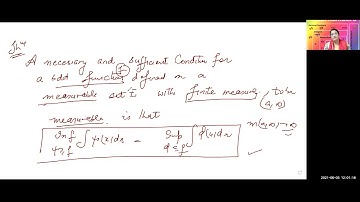 Th^m
A necessary and sufficient Condition for
a bdd function f defined on a
measurable set E with finite measure, to be
(a, ∞)
measurable is that m(a,∞) = ∞
Inf ∫ ψ(x)dx = Sup ∫ φ(x)dx
ψ≥f φ≤f
2021-06-03 12:01:16